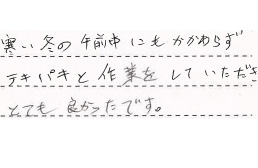 寒い冬の午前中にもかかわらず
テキパキと作業をしていただき
とても良かったです。